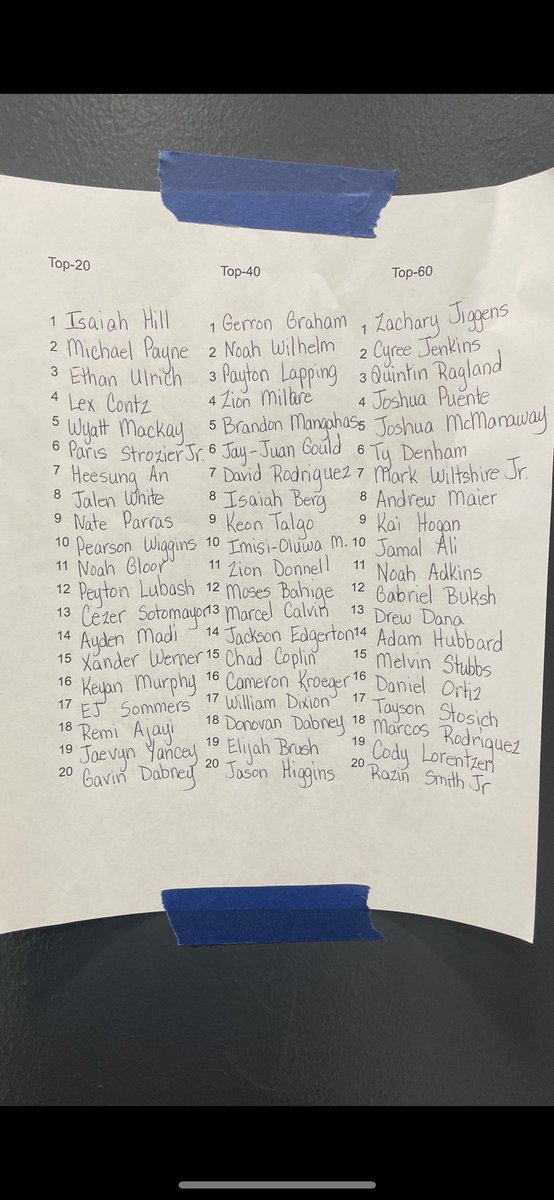 Top-20
1 Isaiah Hill
2 Michael Payne
3 Ethan Ulrich
4 Lex Contz
5 Wyatt Mackay
6 Paris Strozier Jr.
7 Heesung An
8 Jalen White
9 Nate Parras
10 Pearson Wiggins
11 Noah Gloor
12 Peyton Lubash
13 Cezer Sotomayor
14 Ayden Madi
15 Xander Werner
16 Keyan Murphy
17 EJ Sommers
18 Remi Ajayi
19 Jaevyn Yancey
20 Gavin Dabney
Top-40
1 Gerron Graham
2 Noah Wilhelm
3 Payton Lapping
4 Zion Millare
5 Brandon Mangahas
6 Jay-Juan Gould
7 David Rodriguez
8 Isaiah Berg
9 Keon Talgo
10 Imisi-Oluwa M.
11 Zion Donnell
12 Moses Bahige
13 Marcel Calvin
14 Jackson Edgerton
15 Chad Coplin
16 Cameron Kroeger
17 William Dixion
18 Donovan Dabney
19 Elijah Brush
20 Jason Higgins
Top-60
1 Zachary Jiggens
2 Cyree Jenkins
3 Quintin Ragland
4 Joshua Puente
5 Joshua McManaway
6 Ty Denham
7 Mark Wiltshire Jr.
8 Andrew Maier
9 Kai Hogan
10 Jamal Ali
11 Noah Adkins
12 Gabriel Buksh
13 Drew Dana
14 Adam Hubbard
15 Melvin Stubbs
16 Daniel Ortiz
17 Tayson Stosich
18 Marcos Rodriquez
19 Cody Lorentzen
20 Razin Smith Jr